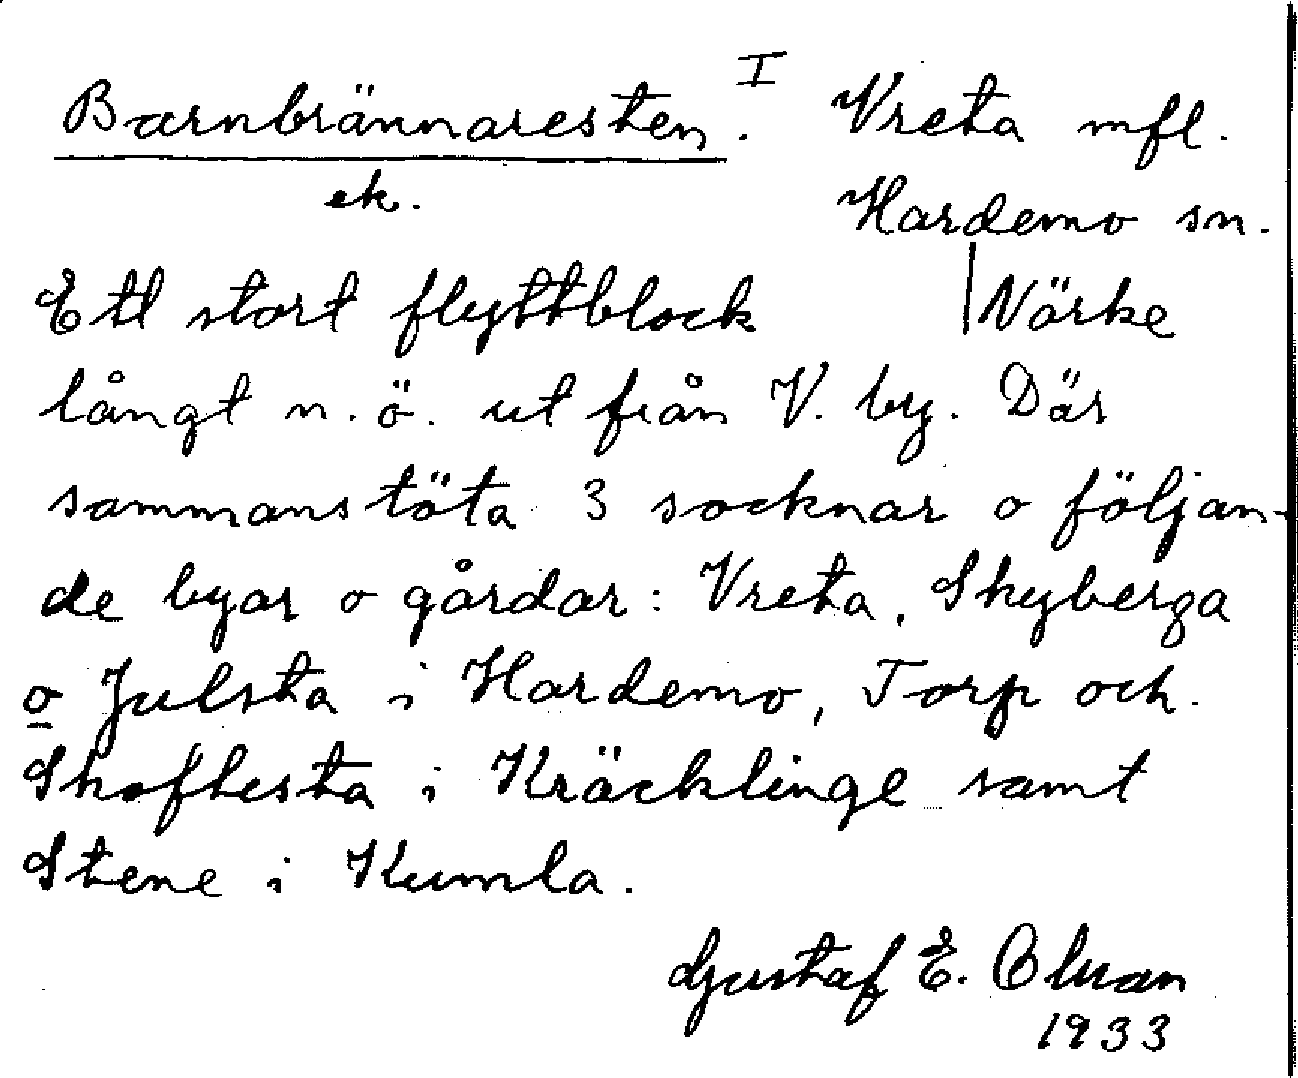 Barnbrännaresten. I Vreta mfl.
ek. Hardemo sn.
Ett stort flyttblock | Närke
långt n. ö. ut från V. by. Där
sammanstöta 3 socknar o följan-
de byar o gårdar: Vreta, Skyberga
o Julsta i Hardemo, Torp och
Skoftesta i Kräcklinge samt
Stene i Kumla.
Gustaf E.
1933